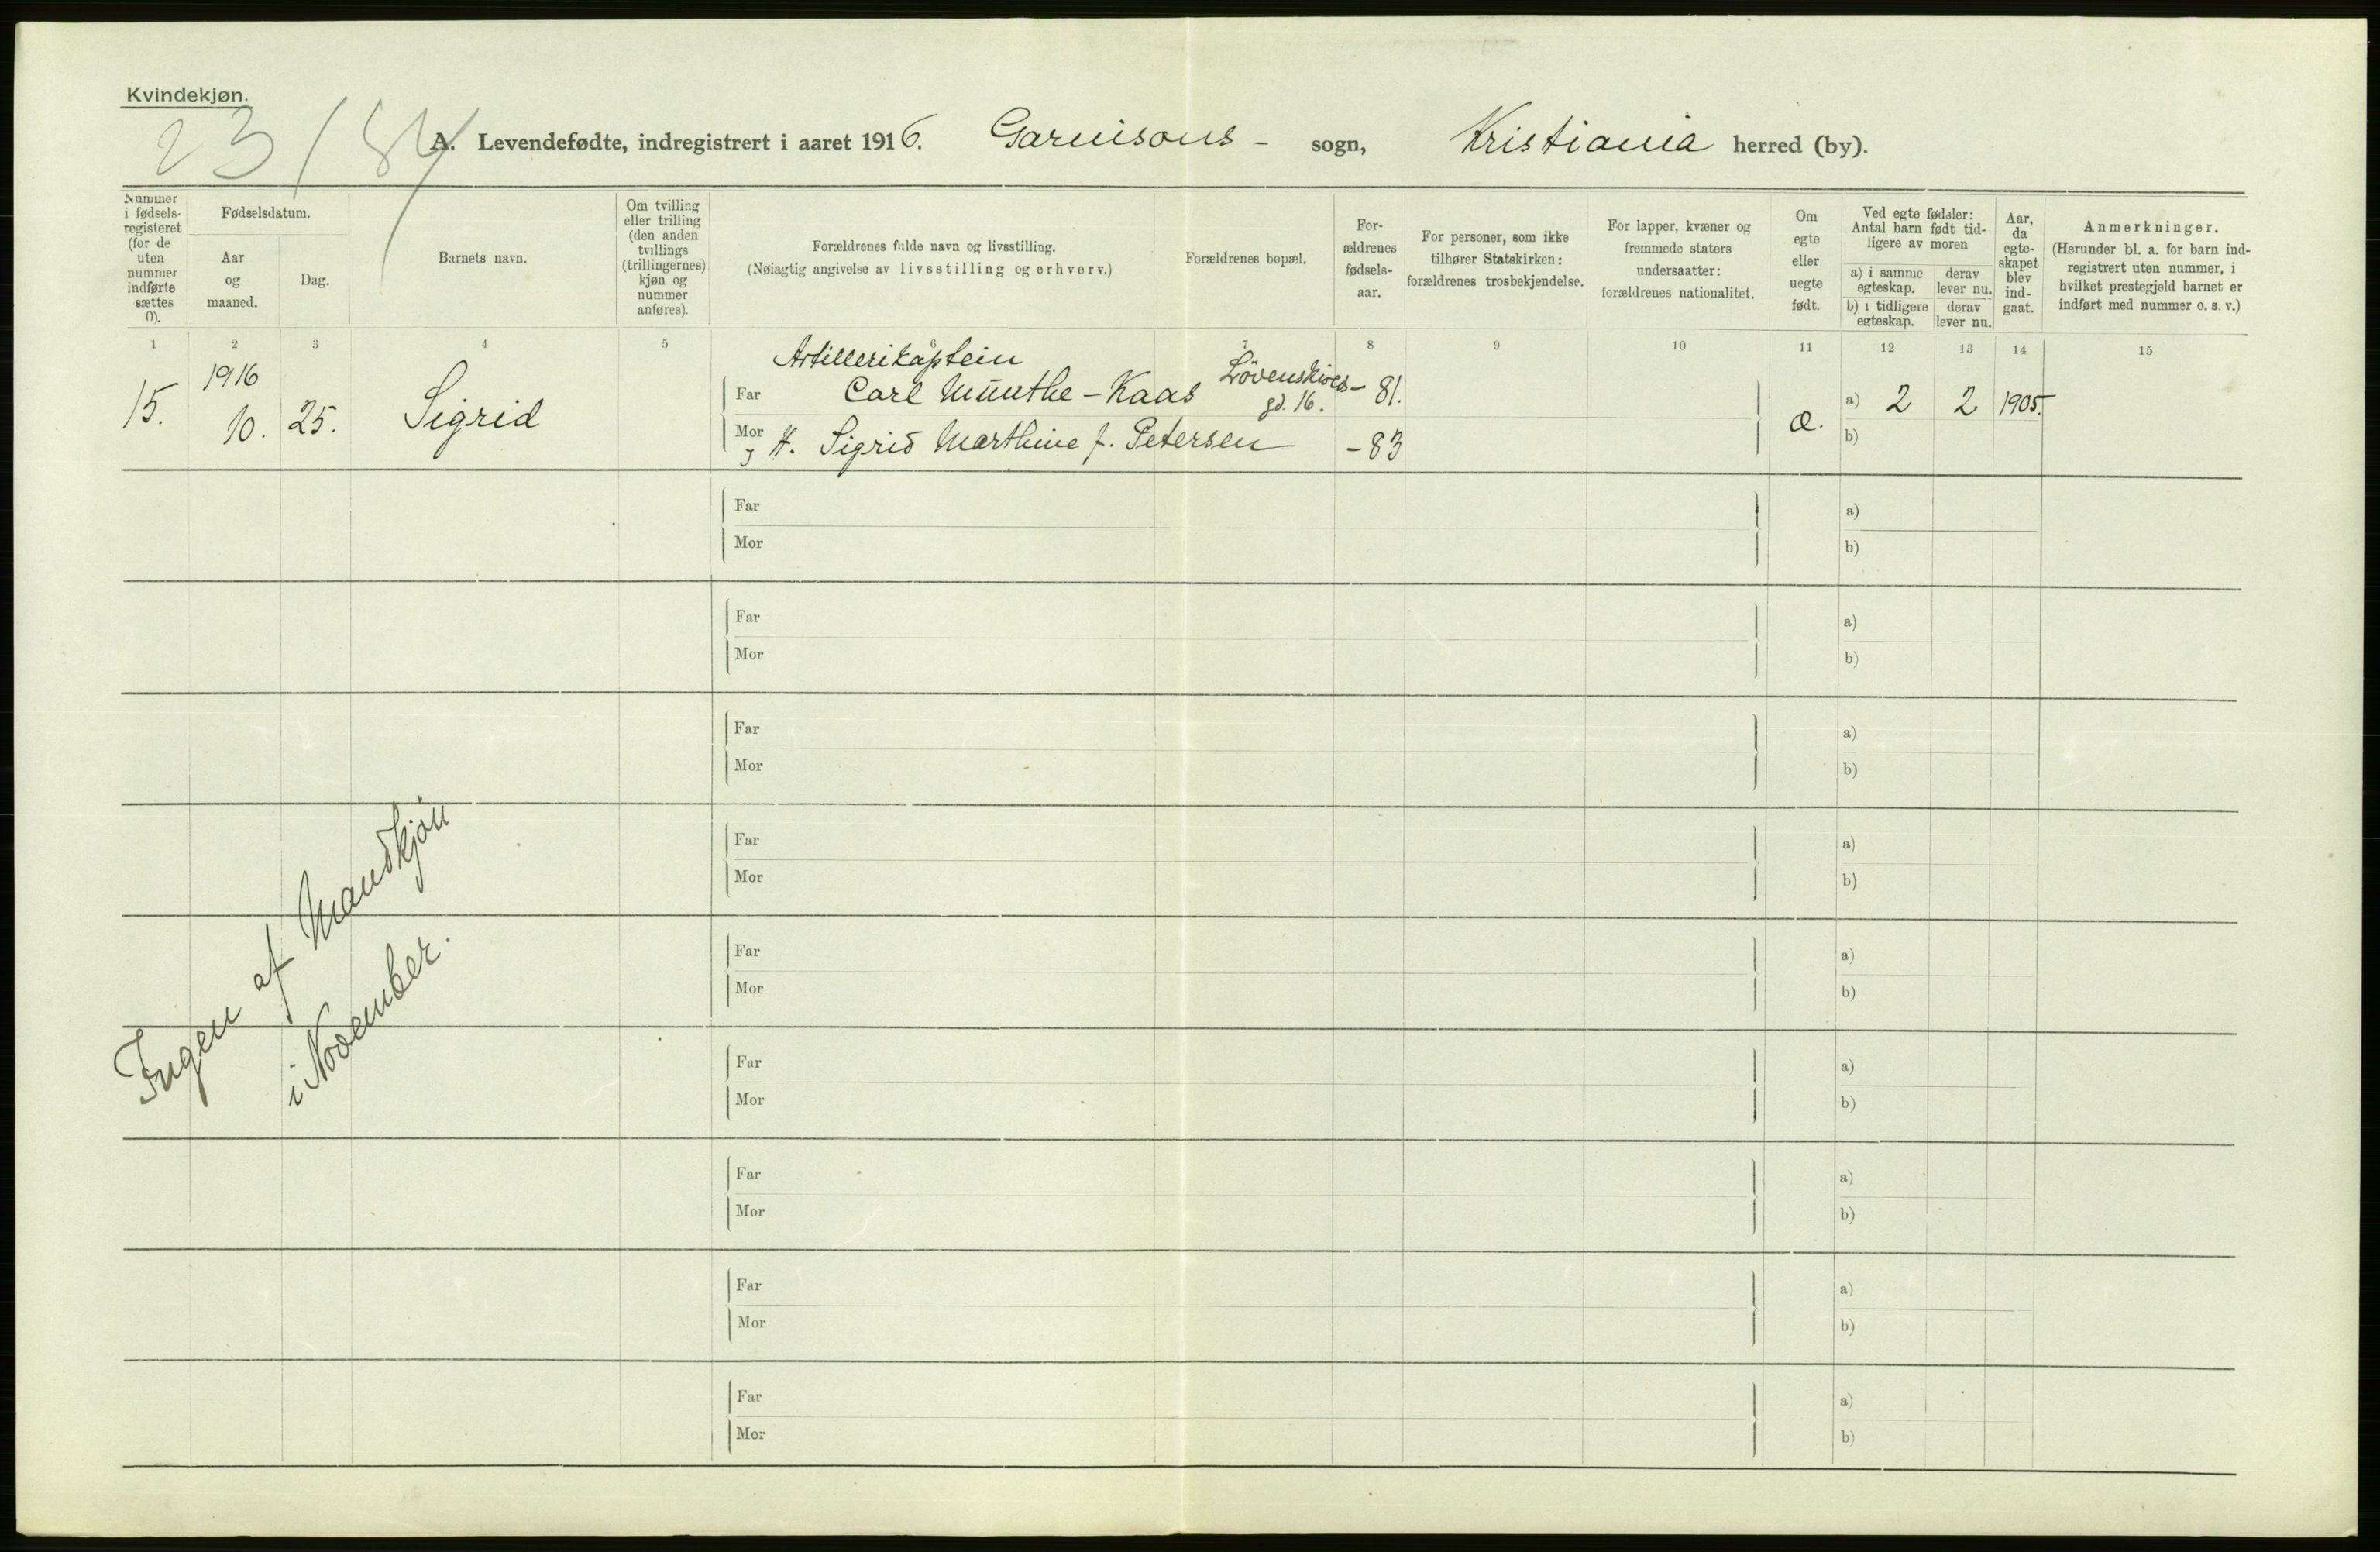 Kvindekjøn.
23/84
A. Levendefødte, indregistrert i aaret 1916. Garnisons- sogn, Kristiania herred (by).
Nummer i fødselsregisteret (for de uten nummer indførte sættes 0).
Fødselsdatum.
Aar og maaned.
Dag.
Barnets navn.
Om tvilling eller trilling (den anden tvillings (trillingernes) kjøn og nummer anføres).
Forældrenes fulde navn og livsstilling.
(Nøiagtig angivelse av livsstilling og erhverv.)
Forældrenes bopæl.
Forældrenes fødselsaar.
For personer, som ikke tilhører Statskirken: forældrenes trosbekjendelse.
For lapper, kvæner og fremmede staters undersaatter: forældrenes nationalitet.
Om egte eller uegte født.
Ved egte fødsler: Antal barn født tidligere av moren
a) i samme egteskap. derav lever nu.
b) i tidligere egteskap. derav lever nu.
Aar, da egteskapet blev indgaat.
Anmerkninger.
(Herunder bl. a. for barn indregistrert uten nummer, i hvilket prestegjeld barnet er indført med nummer o. s. v.)
1 2 3 4 5 6 7 8 9 10 11 12 13 14 15
Artillerikaptein
15. 1916 10. 25. Sigrid Far Carl Münthe-Kaas Lövenskiolds gd. 16. - 81. æ. a) 2 2 1905.
Mor H. Sigrid Marthine f. Petersen - 83 b)
Far a)
Mor b)
Far a)
Mor b)
Far a)
Mor b)
Far a)
Mor b)
Far a)
Mor b)
Far a)
Mor b)
Far a)
Mor b)
Far a)
Mor b)
Far a)
Mor b)
Ingen af Mandkjön
i November.